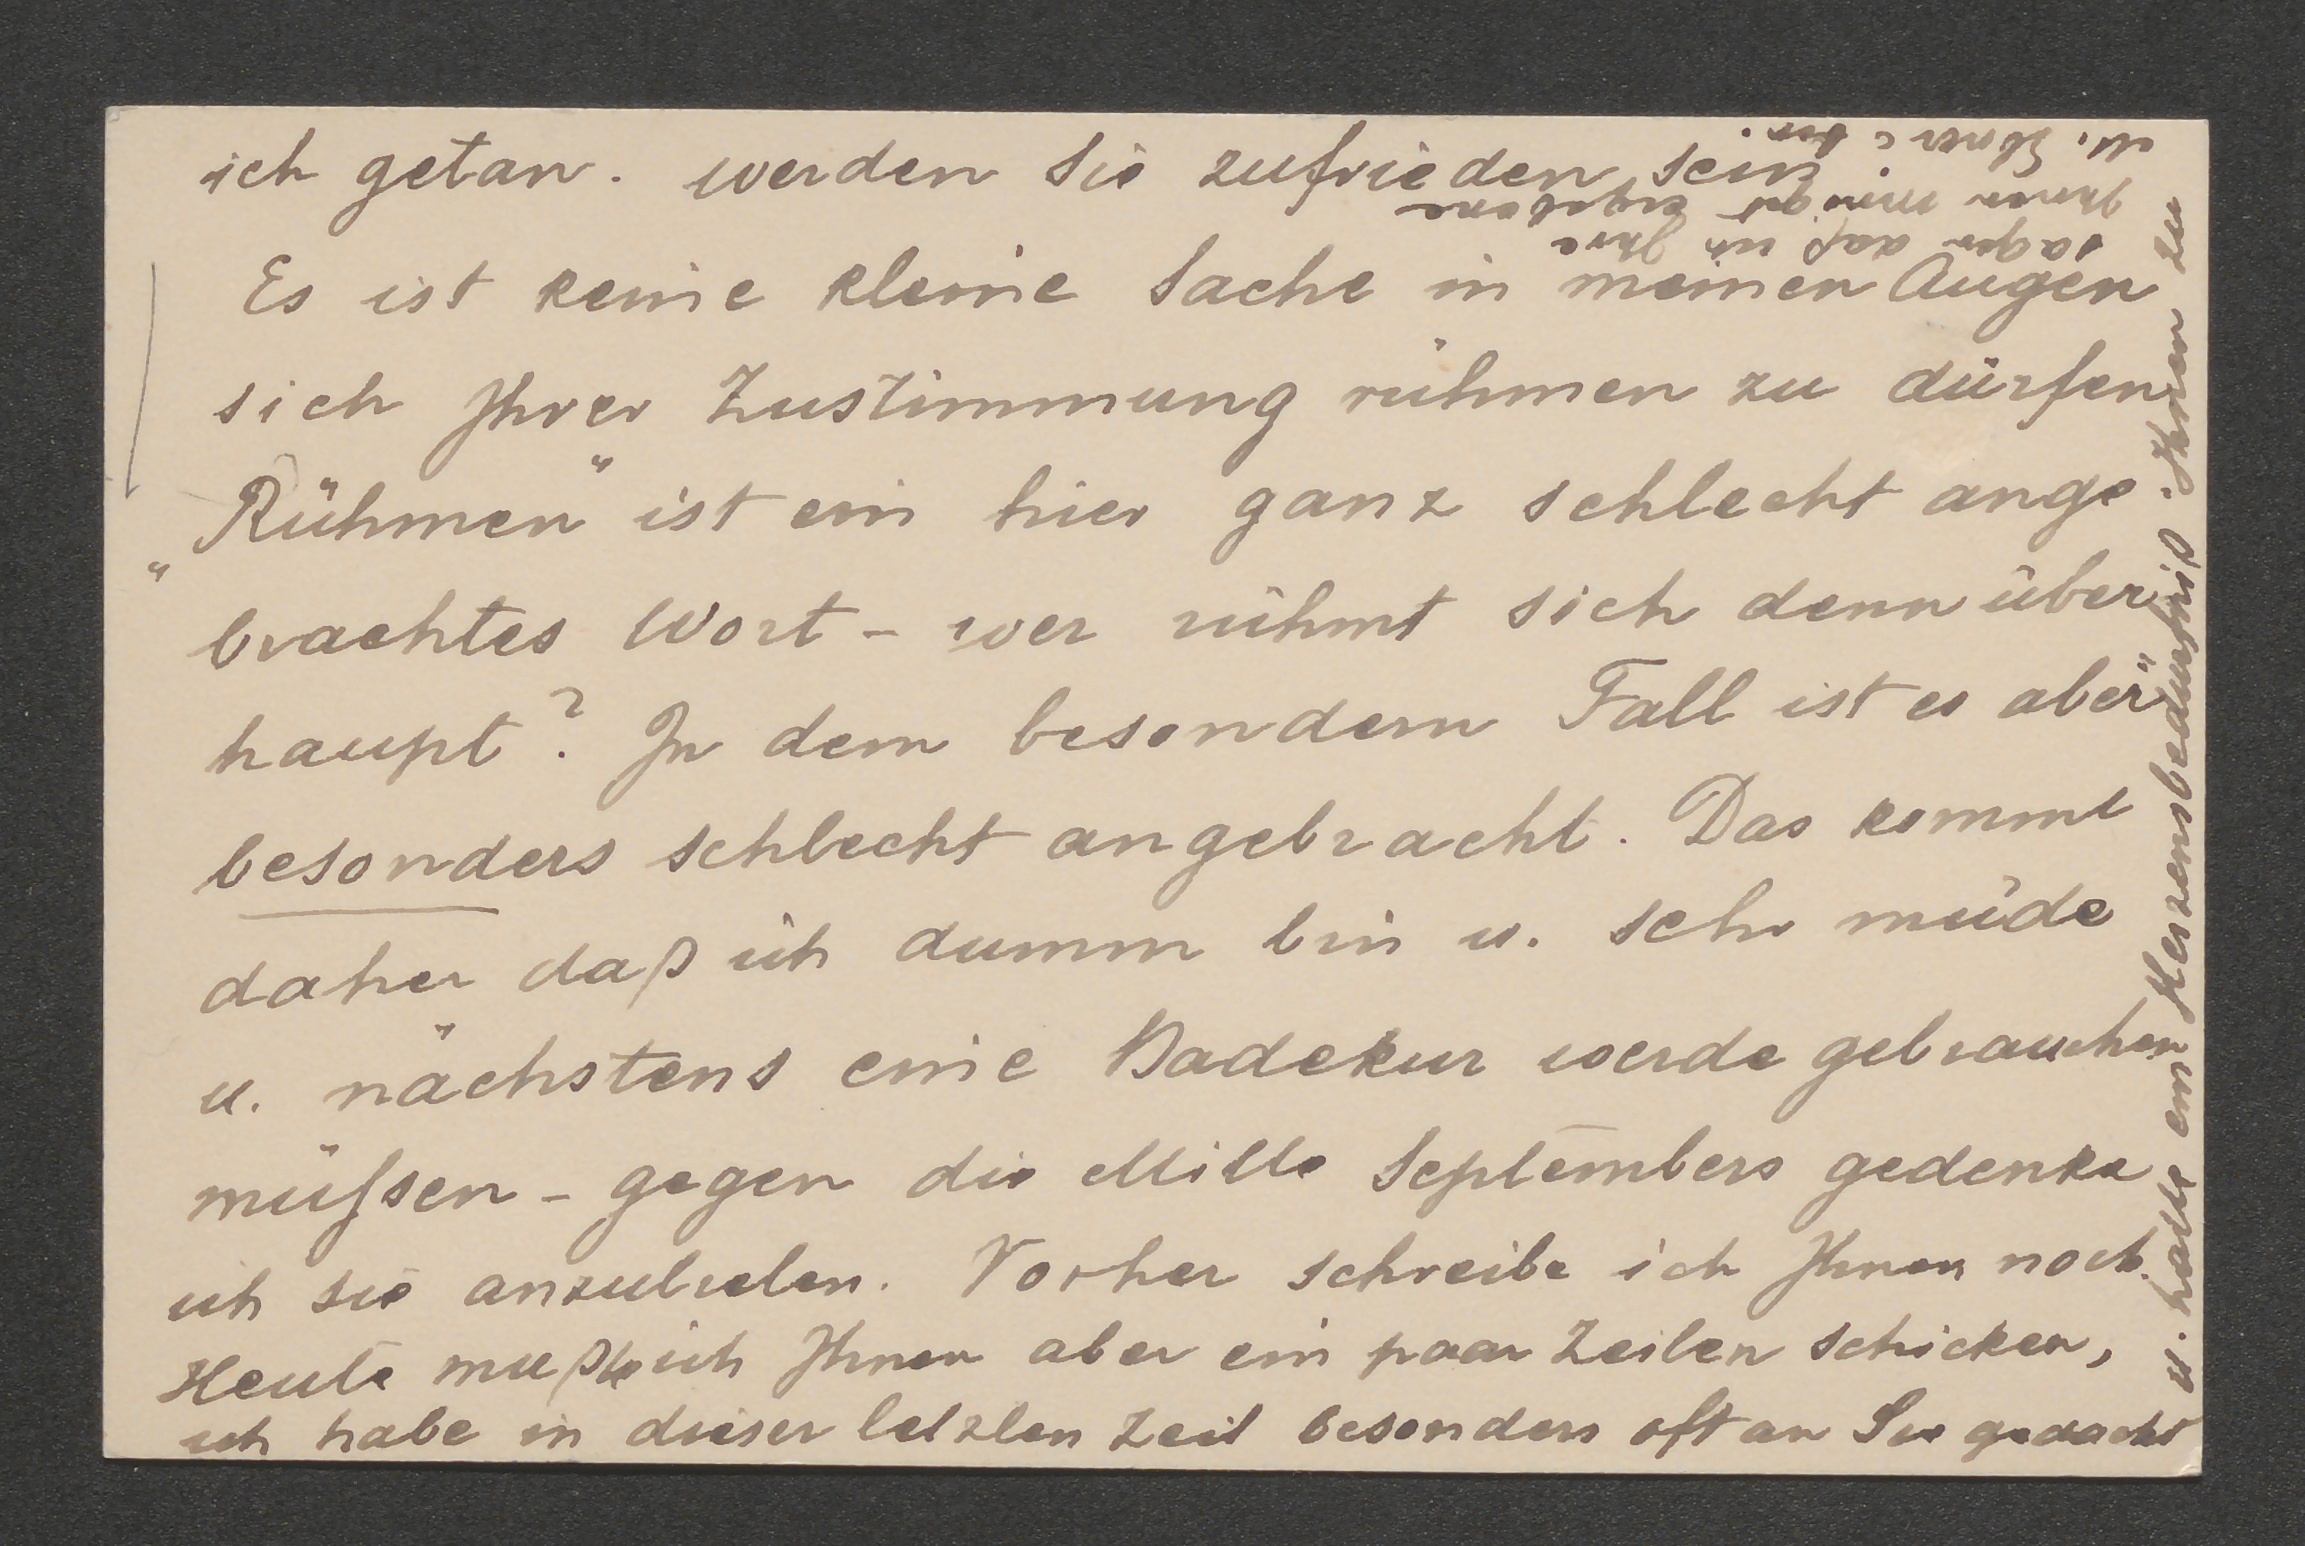 ich getan. werden Sie zufrieden sein
Es ist keine kleine Sache in meinen Augen
sich Ihrer Zustimmung rühmen zu dürfen
„Rühmen“ ist ein hier ganz schlecht ange
brachtes Wort – wer rühmt sich denn über
haupt? In dem besondern Fall ist es aber
besonders schlecht angebracht. Das kommt
daher daß ich dumm bin u. sehr müde
u. nächstens eine Badekur werde gebrauchen
müſsen – gegen die Mitte Septembers gedenke
ich sie anzutreten. Vorher schreibe ich Ihnen noch.
Heute mußte ich Ihnen aber ein paar Zeilen schicken,
ich habe in dieser letzten Zeit besonders oft an Sie gedacht
u. hatte ein Herzensbedürfniß. Ihnen zu
sagen daß ich Ihre
Ihnen innigst ergebene
M. Ebner
bin.